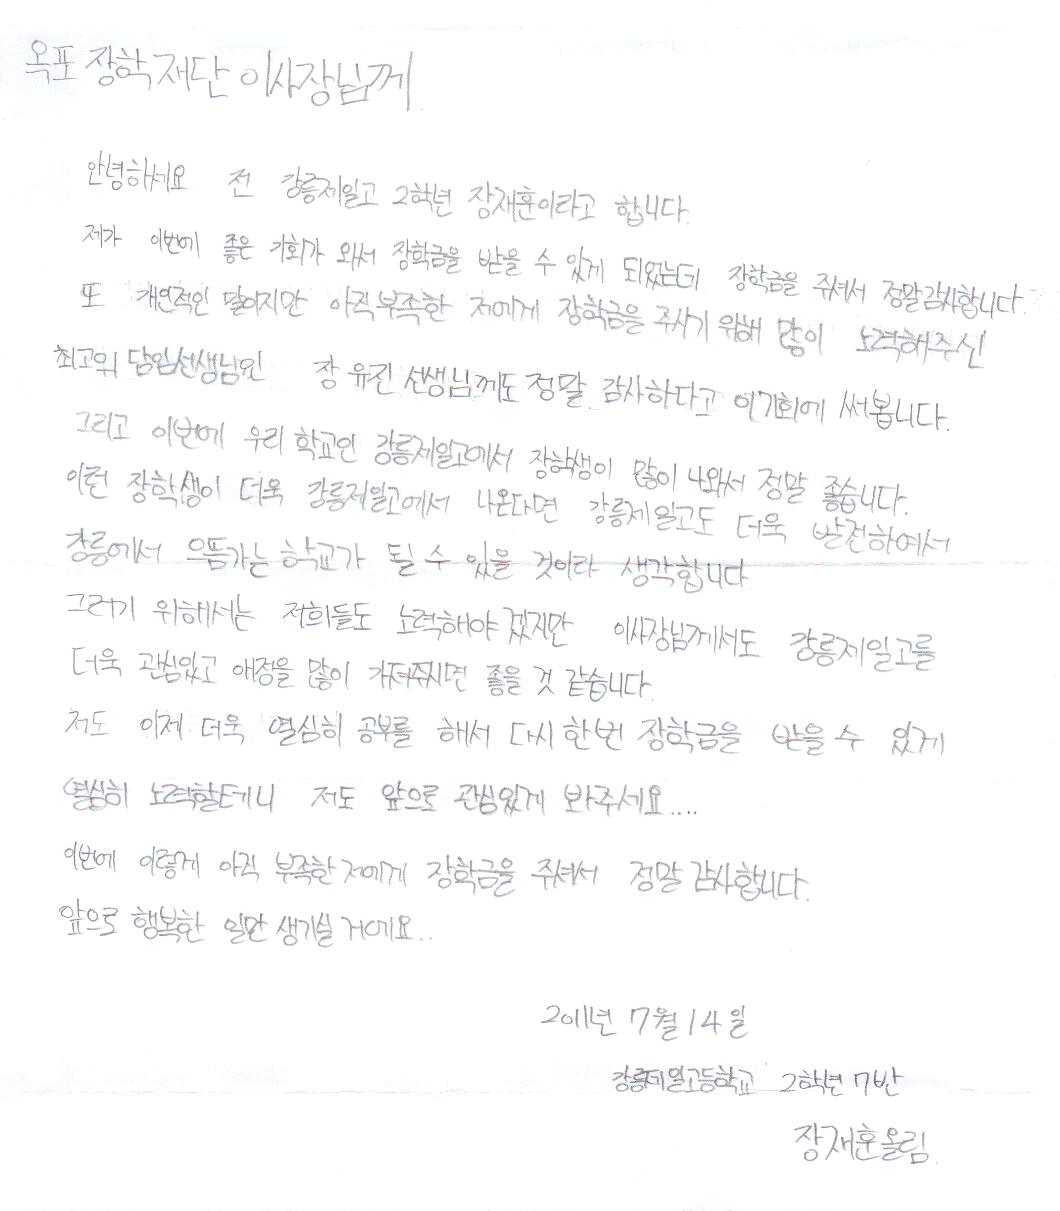 옥포 장학 재단 이사장님께
안녕하세요 전 강릉제일고 2학년 장재훈이라고 합니다.
제가 이번에 좋은 기회가 와서 장학금을 받을 수 있게 되었는데 장학금을 주셔서 정말 감사합니다.
또 개인적인 말이지만 아직 부족한 저에게 장학금을 주시기 위해 많이 노력해주신
최고의 담임선생님인 장유진 선생님께도 정말 감사하다고 이기회에 써봅니다.
그리고 이번에 우리 학교인 강릉제일고에서 장학생이 많이 나와서 정말 좋습니다.
이런 장학생이 더욱 강릉제일고에서 나온다면 강릉제일고도 더욱 발전하여서
강릉에서 으뜸가는 학교가 될 수 있을 것이라 생각합니다
그러기 위해서는 저희들도 노력해야 겠지만 이사장님께서도 강릉제일고를
더욱 관심있고 애정을 많이 가져주시면 좋을 것 같습니다.
저도 이제 더욱 열심히 공부를 해서 다시 한번 장학금을 받을 수 있게
열심히 노력할테니 저도 앞으로 관심있게 봐주세요....
이번에 이렇게 아직 부족한 저에게 장학금을 주셔서 정말 감사합니다.
앞으로 행복한 일만 생기실 거에요..
2011년 7월 14일
강릉제일고등학교 2학년 7반
장재훈올림.